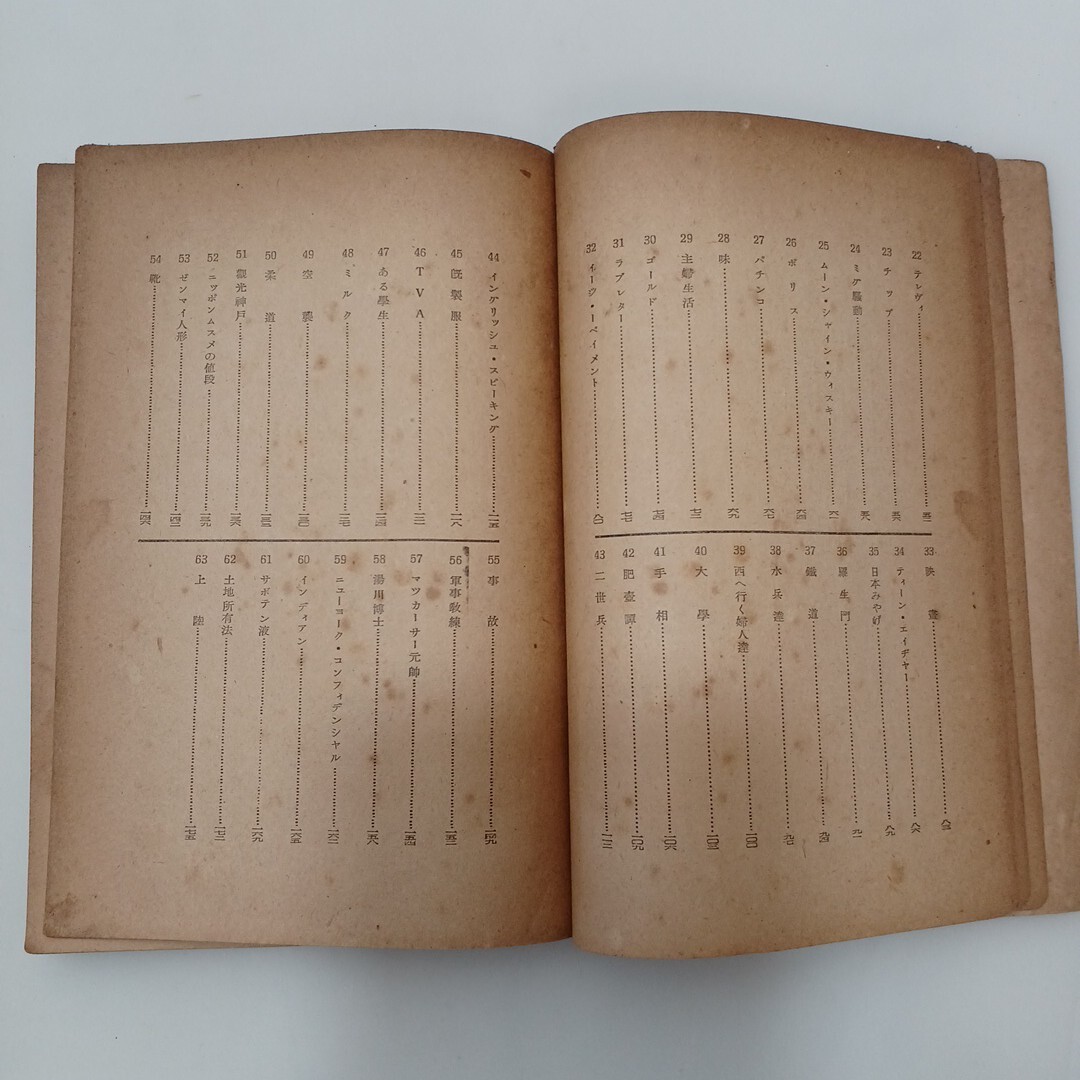 22 テレヴィ……五二
23 チップ……五六
24 ミグ騷動……五九
25 ムーン・シャイン・ウィスキー……六一
26 ポリス……六四
27 パチンコ……六七
28 味……六九
29 主婦生活……七二
30 ゴールド……七四
31 ラブレター……七七
32 イーヴ・ペイメント……八〇
33 映畫……八三
34 ティーン・エイヂャー……八六
35 日本みやげ……八九
36 羅生門……九一
37 鐵道……九四
38 水兵達……九七
39 西へ行く婦人達……一〇〇
40 大學……一〇三
41 手相……一〇六
42 肥壺譚……一〇九
43 二世兵……一一二
44 イングリッシュ・スピーキング……一一五
45 旣製服……一一八
46 TVA……一二一
47 ある學生……一二四
48 ミルク……一二七
49 空襲……一三〇
50 柔道……一三三
51 觀光神戶……一三六
52 ニッポンムスメの値段……一三九
53 ゼンマイ人形……一四二
54 靴……一四六
55 事故……一四九
56 軍事敎練……一五二
57 マッカーサー元帥……一五四
58 湯川博士……一五八
59 ニューヨーク・コンフィデンシャル……一六二
60 インディアン……一六五
61 サボテン液……一六九
62 土地所有法……一七二
63 上陸……一七五